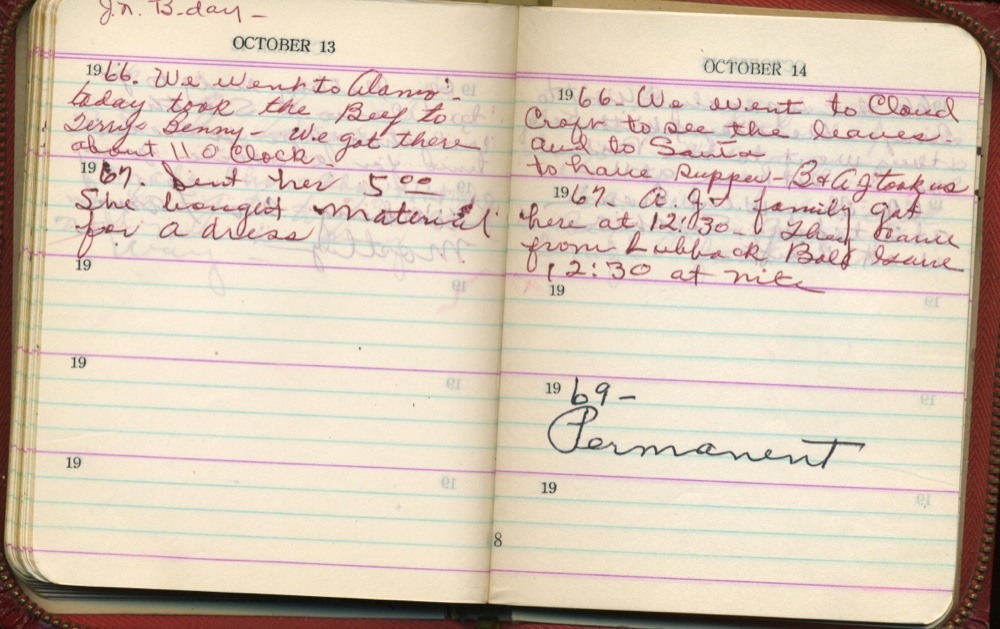 Jn. B-day-
OCTOBER 13
1966. We went to Alamo-
today took the Beef to
Terry & Benny- We got there
about 11 o Clock.
1967. Sent her 5 00
She bought material
for a dress
19
19
19
OCTOBER 14
1966. We went to Cloud
Croft to see the leaves.
and to Santa
to have supper- B & AJ took us
1967. A. J. & family got
here at 12:30- They came
from Lubbock
12:30 at nite
19
1969-
Permanent
19
8